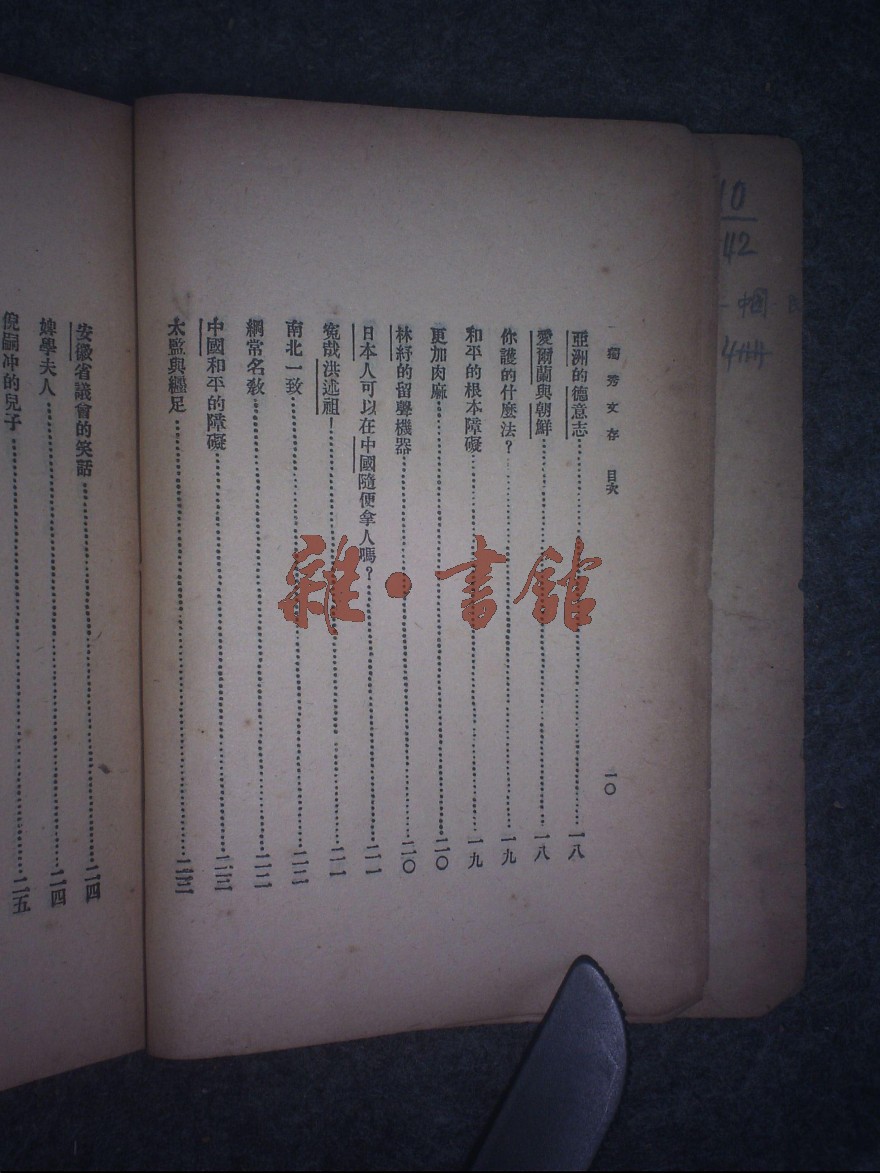 獨秀文存 目次
一〇
亞洲的德意志……一八
愛爾蘭與朝鮮……一八
你護的什麼法？……一九
和平的根本障礙……一九
更加肉麻……二〇
林紓的留聲機器……二〇
日本人可以在中國隨便拿人嗎？……二一
冤哉洪述祖！……二一
南北一致……二二
綱常名教……二二
中國和平的障礙……二三
太監與纏足……二三
安徽省議會的笑話……二四
婢學夫人……二四
倪嗣冲的兒子……二五
雜·書館
10
42
中國